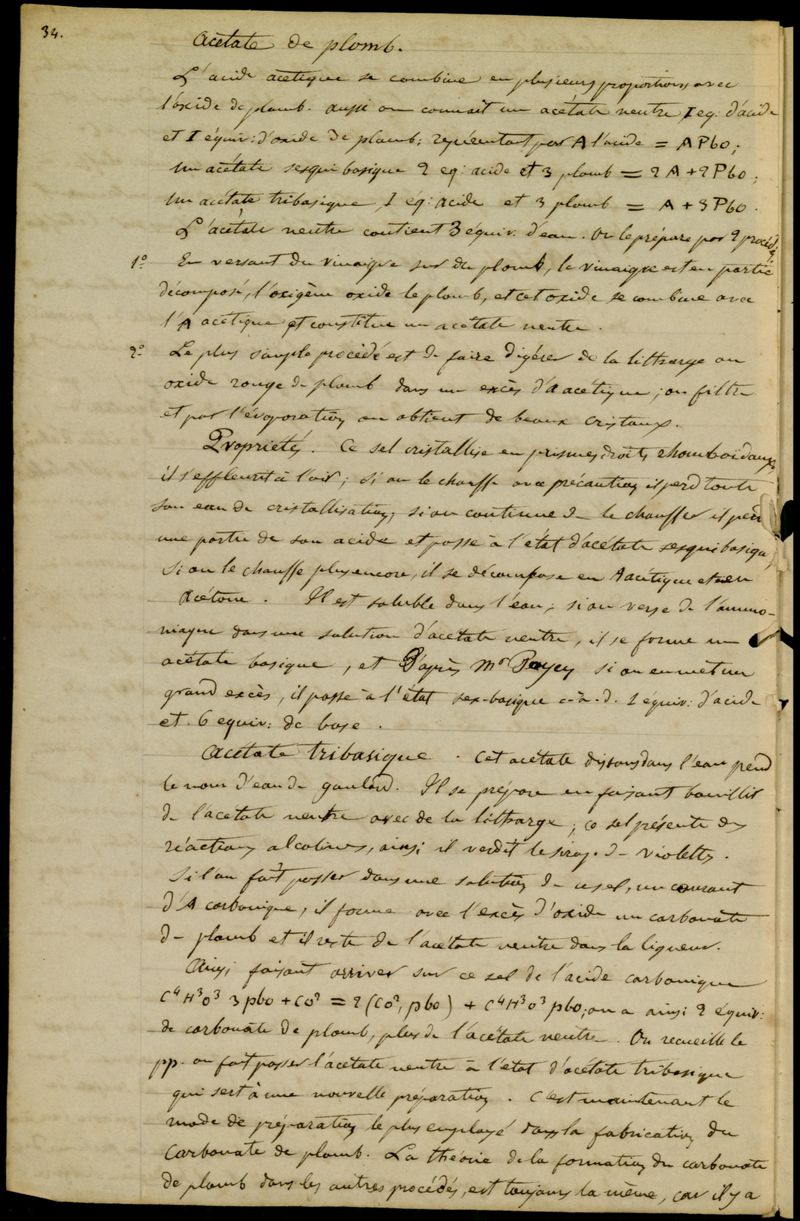 34.
Acétate de plomb.
L'acide acétique se combine en plusieurs proportions avec
l'oxide de plomb. aussi on connait un acétate neutre I eq: d'acide
et I équiv: d'oxide de plomb; représentant par A l'acide = A Pbo;
un acétate sesquibasique 2 eq: acide et 3 plomb = 2 A + 2 Pbo;
un acétate tribasique, I éq: acide et 3 plomb = A + 3 Pbo.
L'acétate neutre contient 3 équiv. d'eau. On le prépare par 2 procédés
1° En versant du vinaigre sur du plomb, le vinaigre est en partie
décomposé, l'oxigène oxide le plomb, et cet oxide se combine avec
l'A acétique et constitue un acétate neutre.
2° Le plus simple procédé est de faire digérer de la litharge ou
oxide rouge de plomb dans un excès d'A acétique; on filtre
et par l'évaporation on obtient de beaux cristaux.
Propriétés. Ce sel cristallise en prismes droits rhomboïdaux,
il s'effleurit à l'air; si on le chauffe avec précaution il perd toute
son eau de cristallisation; si on continue de le chauffer il perd
une partie de son acide et passe à l'état d'acétate sesquibasique,
Si on le chauffe plus encore, il se décompose en A acétique et en
Acétone. Il est soluble dans l'eau; si on verse de l'ammo-
niaque dans une solution d'acétate neutre, il se forme un
acétate basique, et D'après Mr Payen si on en met un
grand excès, il passe à l'état sex-basique c-à-d. 1 equiv: d'acide
et 6 equiv: de base.
Acétate tribasique. Cet acétate dissous dans l'eau prend
le nom d'eau de goulard. Il se prépare en faisant bouillir
de l'acétate neutre avec de la litharge; ce sel présente des
réactions alcalines, ainsi il verdit le sirop de violettes.
Si l'on fait passer dans une solution de ce sel, un courant
d'A carbonique, il forme avec l'excès d'oxide un carbonate
de plomb et il reste de l'acétate neutre dans la liqueur.
Ainsi faisant arriver sur ce sel de l'acide carbonique
C⁴H³O³ 3 pbo + co² = 2 (co², pbo) + C⁴H³O³ pbo; on a ainsi 2 équiv:
de carbonate de plomb, plus de l'acétate neutre. On recueille le
pp. on fait passer l'acétate neutre à l'état d'acétate tribasique
qui sert à une nouvelle préparation. C'est maintenant le
mode de préparation le plus employé dans la fabrication du
Carbonate de plomb. La théorie de la formation du carbonate
de plomb dans les autres procédés, est toujours la même, car il y a